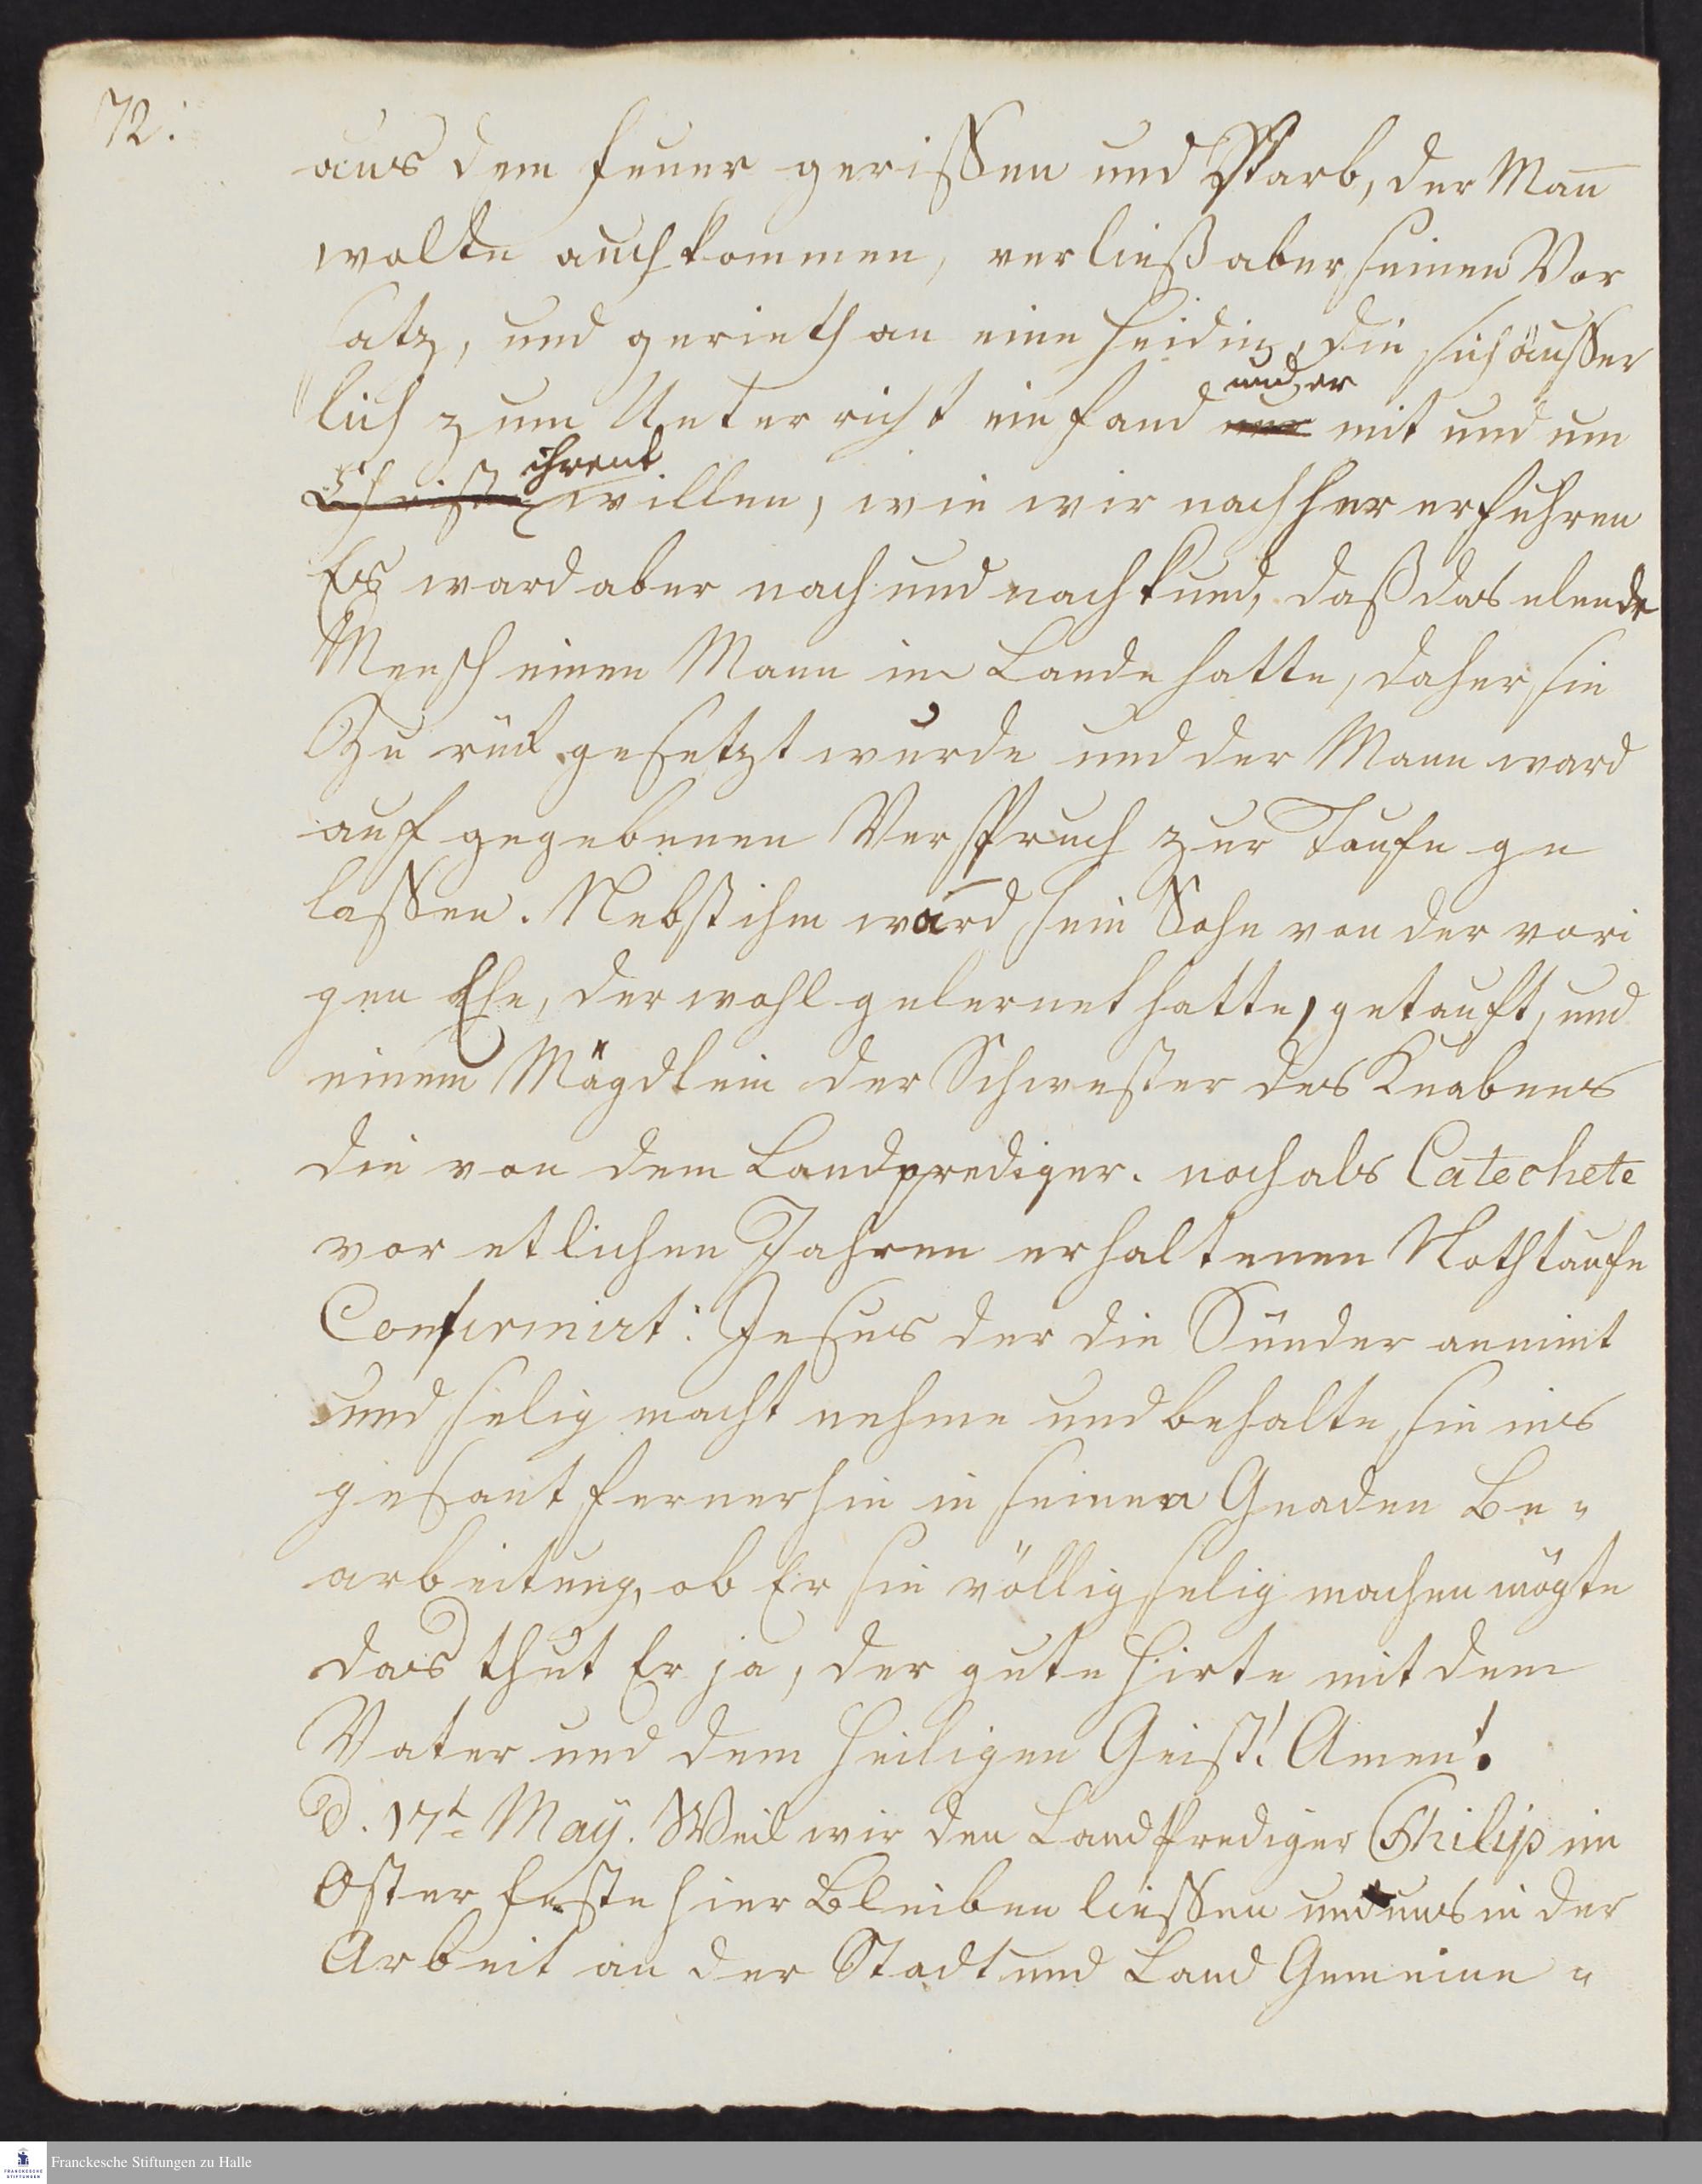 72.
aus dem Feuer gerissen und Starb, der Man̄
wolte auch kommen, verließ aber seinen Vor
satz, und gerieth an eine Heidin, die sich äusser
lich zum Unterricht einfand und er mit und um
Christi ihrent willen, wie wir nachher erfuhren
Es ward aber nach und nach kund, daß das elende
Mensch einen Mann im Lande hatte, daher sie
Zu rük gesetzt wurde und der Mann ward
auf gegebenen Verspruch zur Taufe ge
lassen. Nebst ihm ward sein Sohn von der vori
gen Ehe, der wohl gelernet hatte, getauft, und
einem Mägdlein der Schwester des Knabens
die von dem Landprediger. noch als Catechete
vor etlichen Jahren erhaltenen Nothtaufe
Confirmirt: Jesus der die Sünder annimt
und selig macht nehme und behalte sie ins
gesamt fernerhin in seiner Gnaden Be-
arbeitung, ob Er sie völlig selig machen mögte
das thut Er ja, der gute Hirte mit dem
Vater und dem Heiligen Geist! Amen!
d. 17t May. Weil wir den Landprediger Philip im
Oster feste hier Bleiben liessen und uns in der
Arbeit an der Stadt und Land Gemeine -
Franckesche Stiftungen zu Halle
FRANCKESCHE
STIFTUNGEN